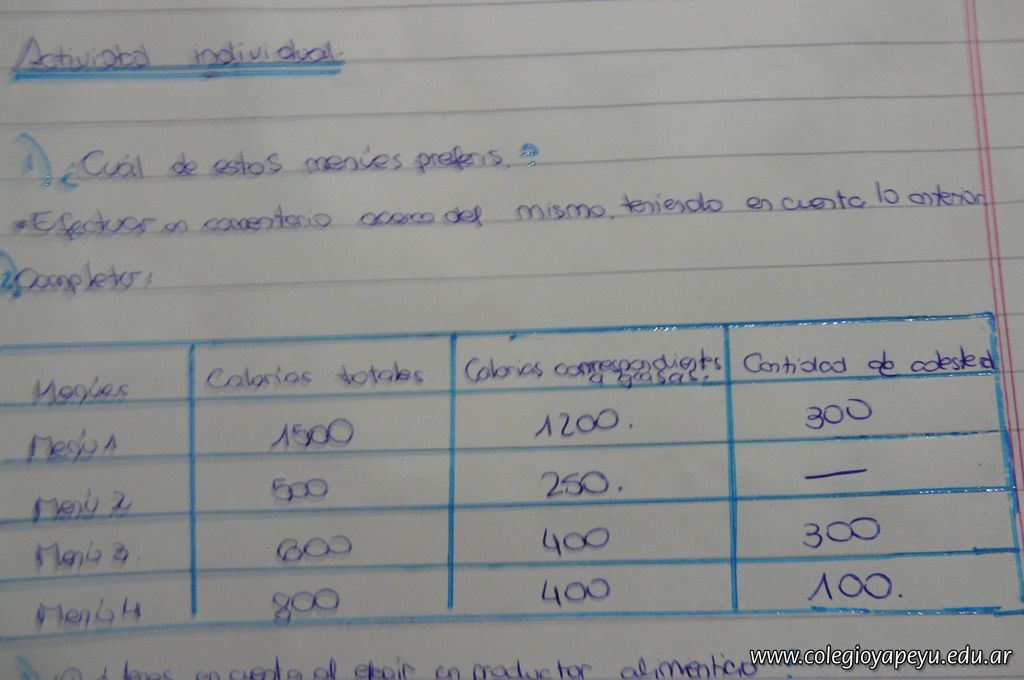 Actividad individual.
1) ¿Cuál de estos menúes preferis.?
*Efectuar un comentario acerca del mismo, teniendo en cuenta lo anterior
2) Completar:
Menúes Calorías totales Calorías correspondientes a grasas. Cantidad de colesterol
Menú 1 1500 1200. 300
Menú 2 500 250. —
Menú 3. 600 400 300
Menú 4 800 400 100.
tenes en cuenta al elegir un productor alimenticio ?
www.colegioyapeyu.edu.ar